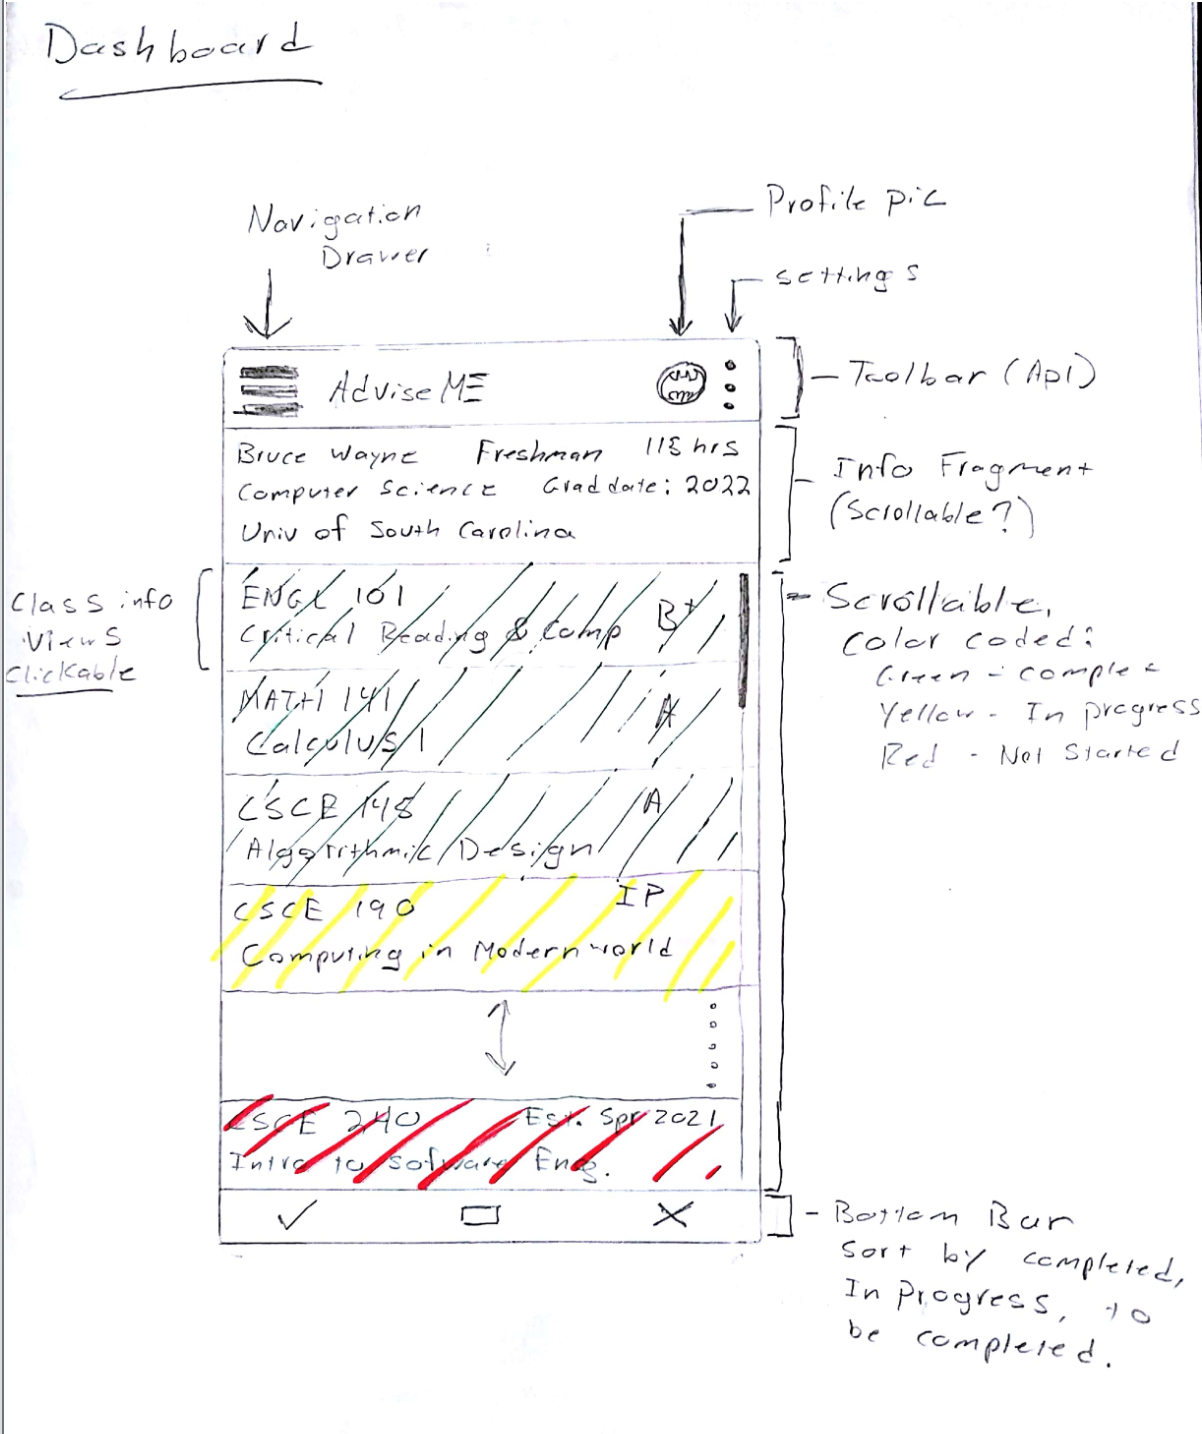 Dashboard
Navigation
Drawer
Profile pic
settings
AdviseME
Toolbar (Apl)
Bruce Wayne Freshman 115 hrs
Computer Science Grad date: 2022
Univ of South Carolina
Info Fragment
(Scrollable?)
Class info
Views
Clickable
ENGL 101
Critical Reading & Comp B+
MATH 141
Calculus 1 A
CSCE 145 A
Algorithmic Design
CSCE 190 IP
Computing in Modern world
CSCE 240 Est. Spr 2021
Intro to Sofware Eng.
Scrollable,
Color coded:
Green - complete
Yellow - In progress
Red - Not Started
Bottom Bar
Sort by completed,
In Progress, to
be completed.